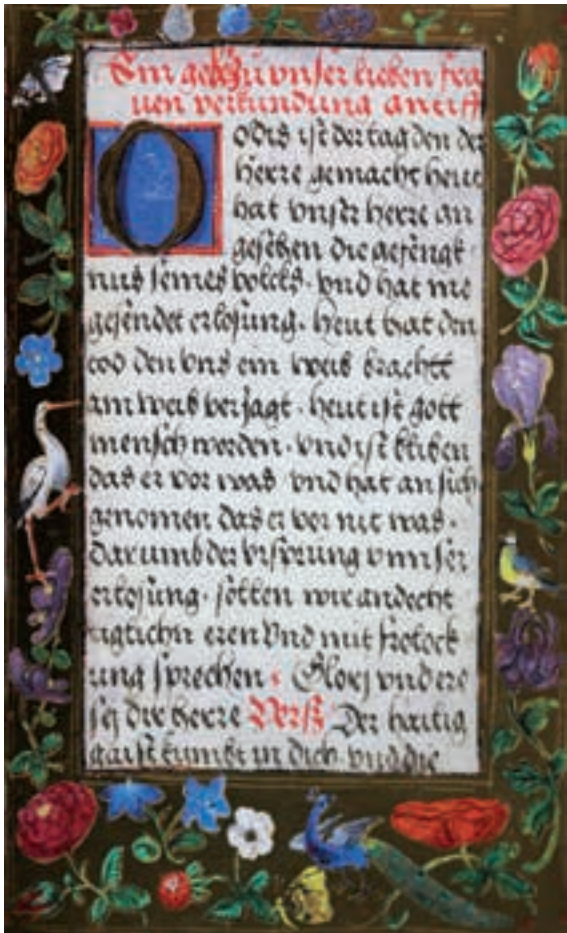 Ein gebet zu vnser lieben fra
uen verkundung antiff
O odis ist der tag den der
herre gemacht heut
hat vnser herre an
gesehen die gefengk
nus seines volcks. vnd hat
gesendet erlosung. heut hat den
tod den vns ein weib bracht
ain weib veriagt. heut ist gott
mensch worden. vnd ist bliben
das er vor was vnd hat an sich
genomen das er vor nit was.
darumb der vrsprung vnnser
erlosung. sollen wir andecht
eren Vnd mit frolock
ung sprechen Glorj vnd ere
sej dir herre Verss Der hailig
gaist kumbt in dich. vnd die